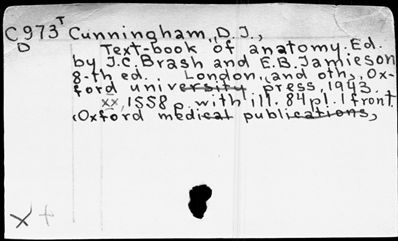 C973T Cunningham, D.J.,
D Text-book of anatomy. Ed.
by J.C. Brash and E.B. Jamieson
8-th ed. London, and oth., Ox-
ford university press, 1943.
xx, 1558 p. with ill. 84 pl. 1 front.
(Oxford medical publications)